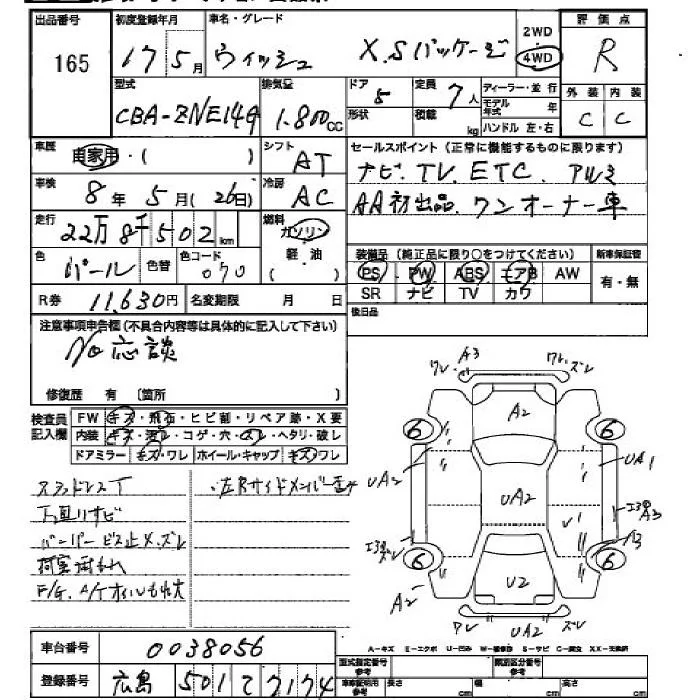 出品番号 初度登録年月 車名・グレード 2WD 評価点
165 17年5月 ウィッシュ X.Sパッケージ 4WD R
型式 排気量 ドア 定員 ディーラー・並行 外装 内装
CBA-ZNE14G 1.800cc 5 7人 モデル年式 年 C C
形状 積載 kg ハンドル 左・右
車歴 自家用・( ) シフト AT セールスポイント(正常に機能するものに限ります)
車検 8年5月(26日) 冷房 AC ナビ.TV.ETC.アルミ
走行 22万8千502km 燃料 ガソリン AA初出品.ワンオーナー車
軽・油 ( )
色 パール 色替 色コード 070 装備品(純正品に限り○をつけてください) 新車保証書
PS PW ABS エアB AW 有・無
R券 11,630円 名変期限 月 日 SR ナビ TV カワ
注意事項申告欄(不具合内容等は具体的に記入して下さい) 後日品
No応談
修復歴 有 〔箇所 〕
検査員記入欄 FW キズ・飛石・ヒビ割・リペア跡・X要
内装 キズ・汚レ・コゲ・穴・スレ・ヘタリ・破レ
ドアミラー キズ・ワレ ホイール・キャップ キズ・ワレ
下廻りサビ
バンパービス止メ.ズレ
ワレ A3 ワレ.ズレ
A2
6 6
UA2 UA1
UA2
V1 A3
A3
6 6
A2 U2
ワレ UA2 ズレ
A-キズ E-エクボ U-凹み W-補修跡 S-サビ C-腐食 XX-交換済
車台番号 0038056
型式指定番号 参考 類別区分番号 参考
登録番号 広島 501 て 7174
車庫証明用 参考 長さ cm 幅 cm 高さ cm